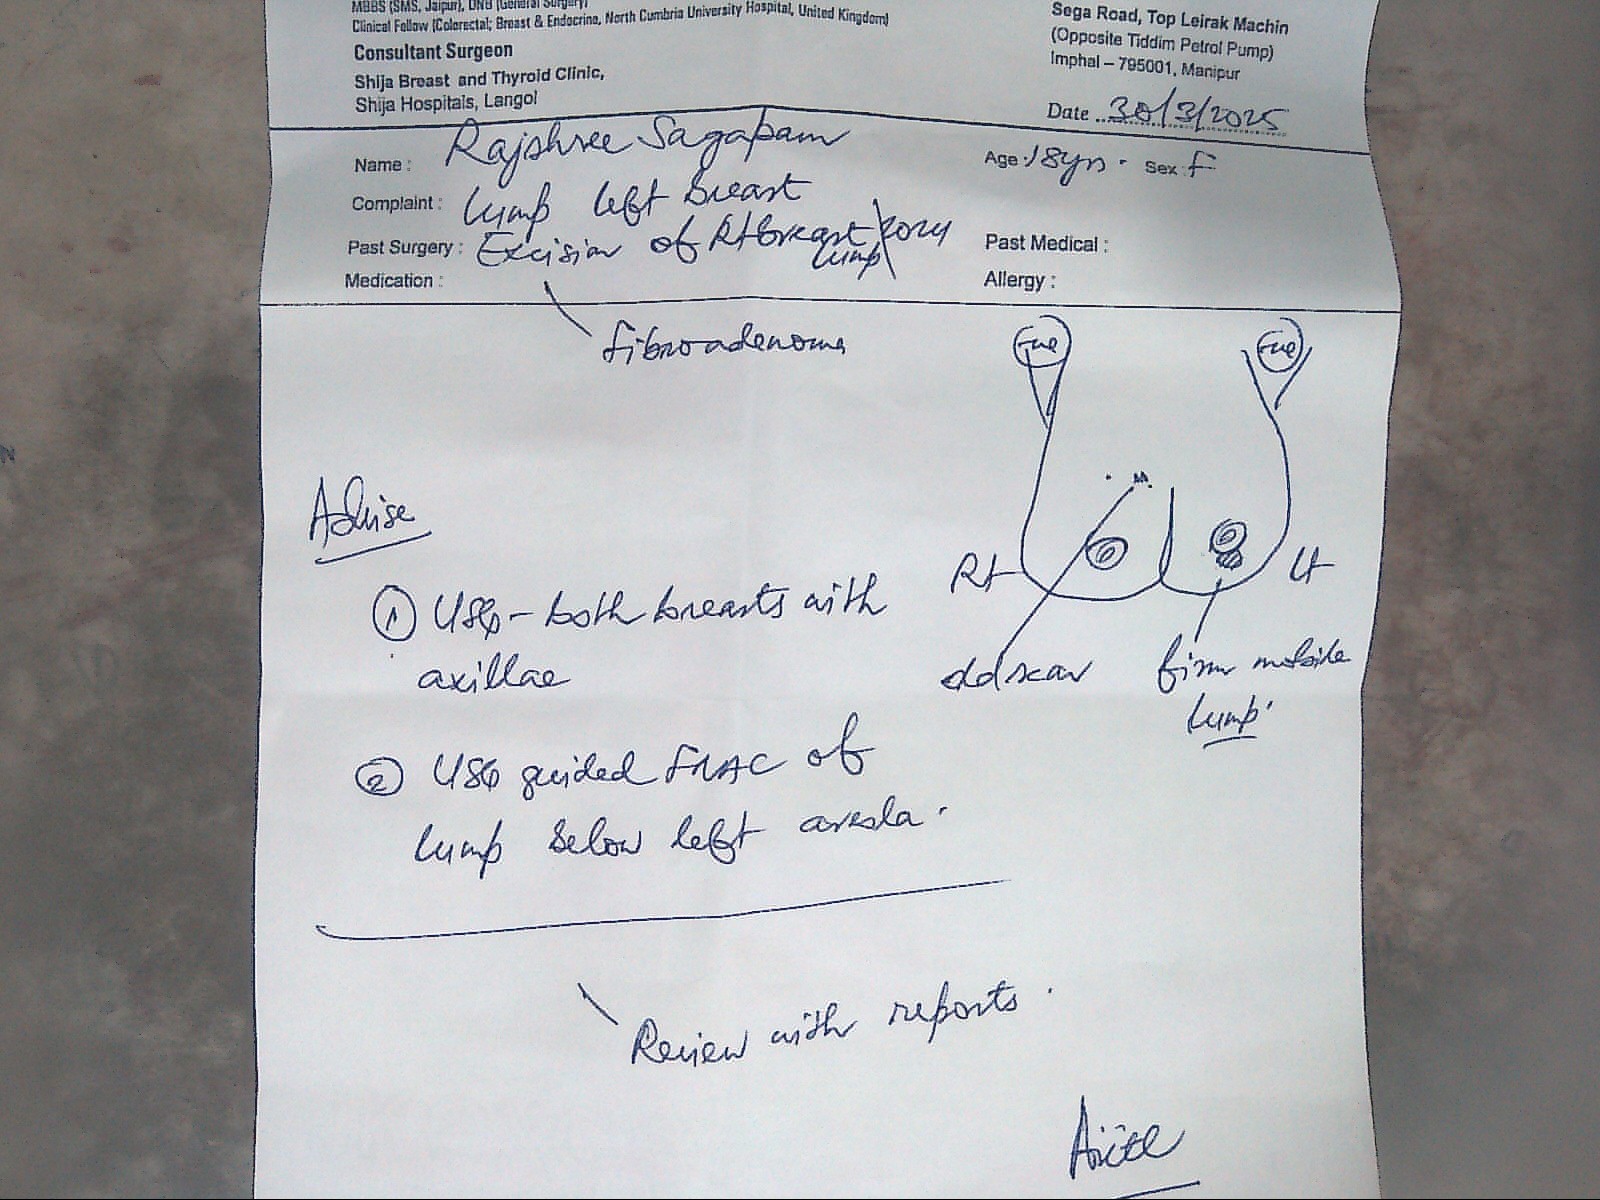 MBBS (SMS, Jaipur), DNB (General Surgery)
Clinical Fellow (Colorectal; Breast & Endocrine, North Cumbria University Hospital, United Kingdom)
Consultant Surgeon
Shija Breast and Thyroid Clinic,
Shija Hospitals, Langol
Sega Road, Top Leirak Machin
(Opposite Tiddim Petrol Pump)
Imphal – 795001, Manipur
Date 30/3/2025
Name : Rajshree Sagapam
Age : 18yrs. Sex : F
Complaint : lump left breast
Past Surgery : Excision of Rt breast lump 2024
Past Medical :
Medication :
Allergy :
fibroadenoma
Advise
① USG - both breasts with
axillae
Rt
Lt
old scar
firm mobile
lump
② USG guided FNAC of
lump below left areola.
Review with reports.